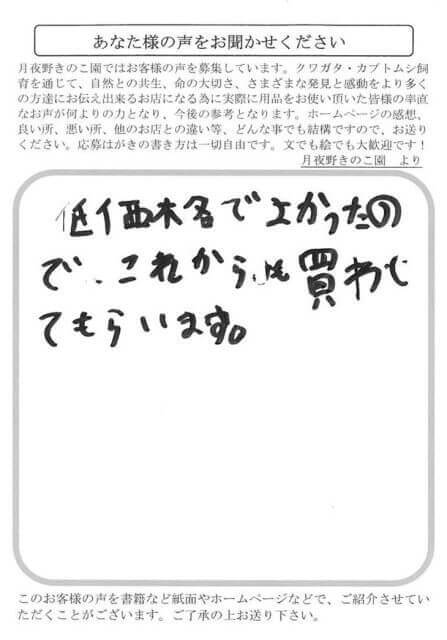 あなた様の声をお聞かせください
月夜野きのこ園ではお客様の声を募集しています。クワガタ・カブトムシ飼
育を通じて、自然との共生、命の大切さ、さまざまな発見と感動をより多く
の方達にお伝え出来るお店になる為に実際に用品をお使い頂いた皆様の率直
なお声が何よりの力となり、今後の参考となります。ホームページの感想、
良い所、悪い所、他のお店との違い等、どんな事でも結構ですので、お送り
ください。応募はがきの書き方は一切自由です。文でも絵でも大歓迎です！
月夜野きのこ園　より
低価格でよかったの
で、これからも買わし
てもらいます。
このお客様の声を書籍など紙面やホームページなどで、ご紹介させてい
ただくことがございます。ご了承の上お送り下さい。